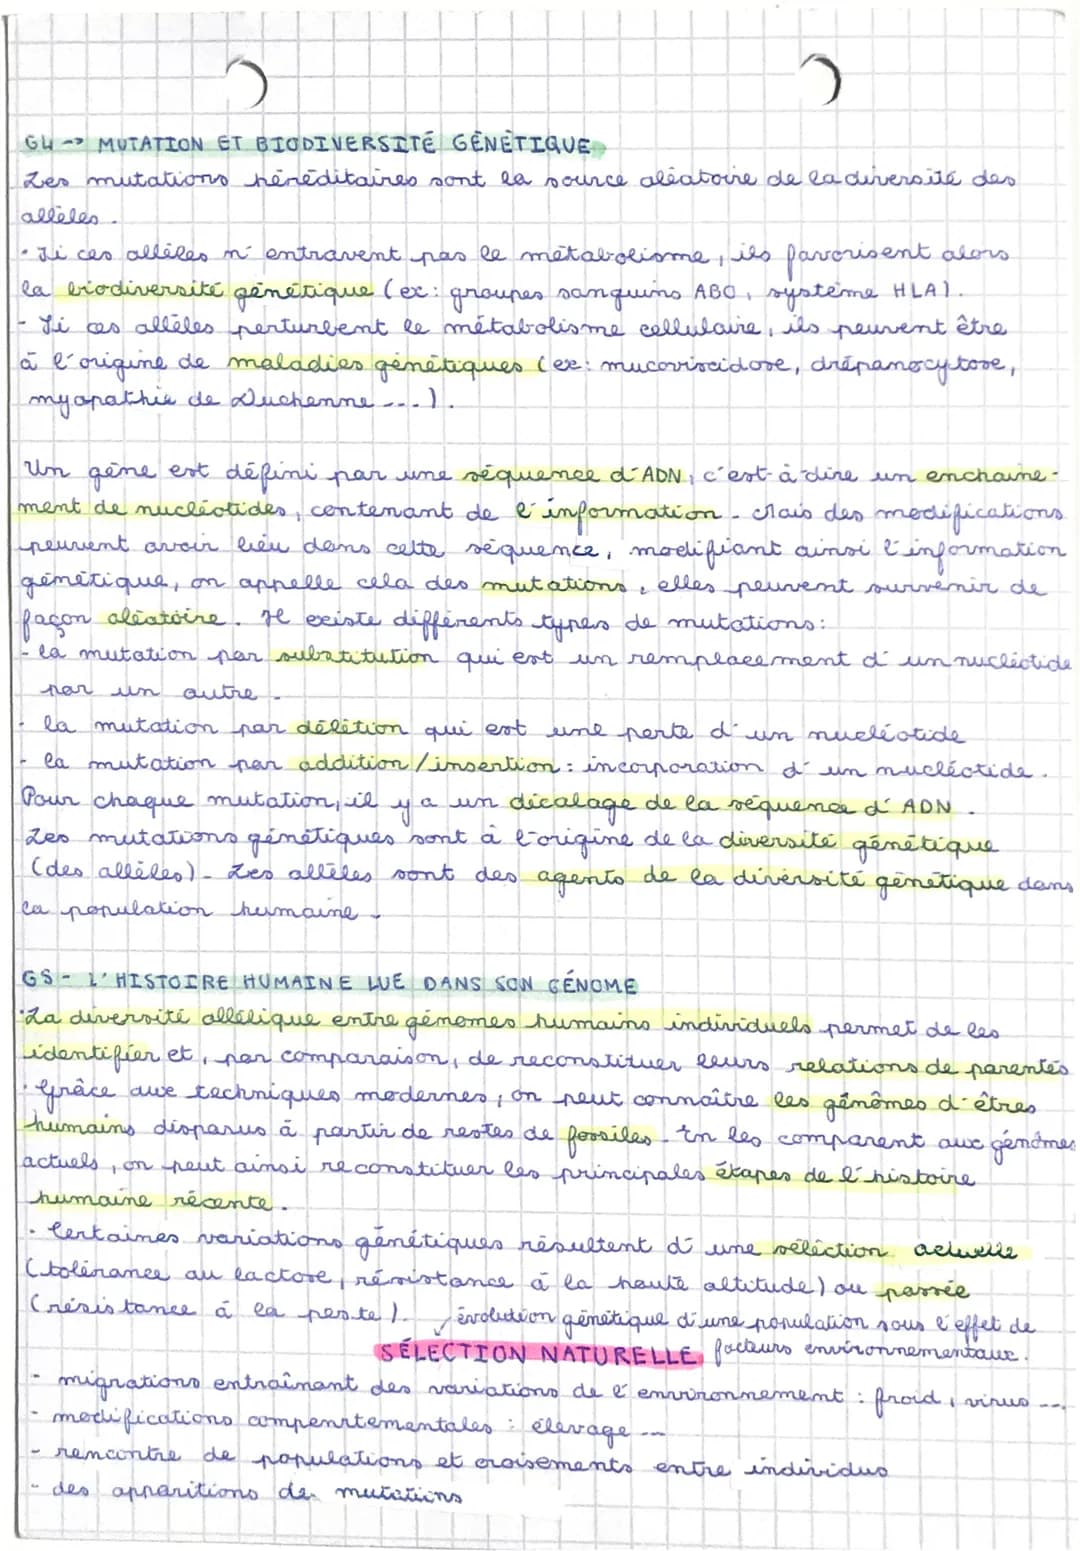 G4 -> MUTATION ET BIODIVERSITÉ GÉNÉTIQUE
Les mutations héréditaires sont la source aléatoire de la diversité des
allèles.
- Si ces allèles n'entravent pas le métabolisme, ils favorisent alors
la biodiversité génétique (ex: groupes sanguins ABO, système HLA).
- Si ces allèles perturbent le métabolisme cellulaire, ils peuvent être
à l'origine de maladies génétiques (ex: mucoviscidose, drépanocytose,
myopathie de Duchenne ...).
Un gène est défini par une séquence d'ADN, c'est-à-dire un enchaine-
ment de nucléotides, contenant de l'information. Mais des modifications
peuvent avoir lieu dans cette séquence, modifiant ainsi l'information
génétique, on appelle cela des mutations, elles peuvent survenir de
façon aléatoire. Il existe différents types de mutations:
- la mutation par substitution qui est un remplacement d'un nucléotide
par un autre.
- la mutation par délétion qui est une perte d'un nucléotide
- la mutation par addition/insertion: incorporation d'un nucléotide.
Pour chaque mutation, il y a un décalage de la séquence d'ADN.
Les mutations génétiques sont à l'origine de la diversité génétique
(des allèles). Les allèles sont des agents de la diversité génétique dans
la population humaine.
G5 - L'HISTOIRE HUMAINE LUE DANS SON GÉNOME
·La diversité allélique entre génomes humains individuels permet de les
identifier et, par comparaison, de reconstituer leurs relations de parentés
· Grâce aux techniques modernes, on peut connaître les génômes d'êtres
humains disparus à partir de restes de fossiles. En les comparent aux génômes
actuels, on peut ainsi reconstituer les principales étapes de l'histoire
humaine récente.
· Certaines variations génétiques résultent d'une séléction actuelle
(tolérance au lactose, résistance à la haute altitude) ou passée
(résistance à la peste). évolution génétique d'une population sous l'effet de
SÉLECTION NATURELLE facteurs environnementaux.
- migrations entraînant des variations de l'environnement: froid, virus ...
- modifications comportementales: élevage ...
- rencontre de populations et croisements entre individus
- des apparitions de mutations